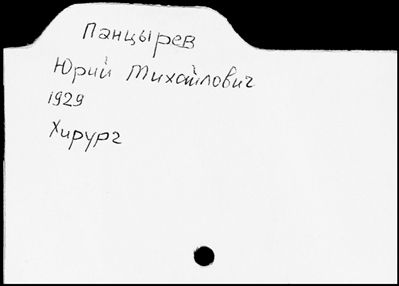 Панцырев
Юрий Михайлович
1929
Хирург